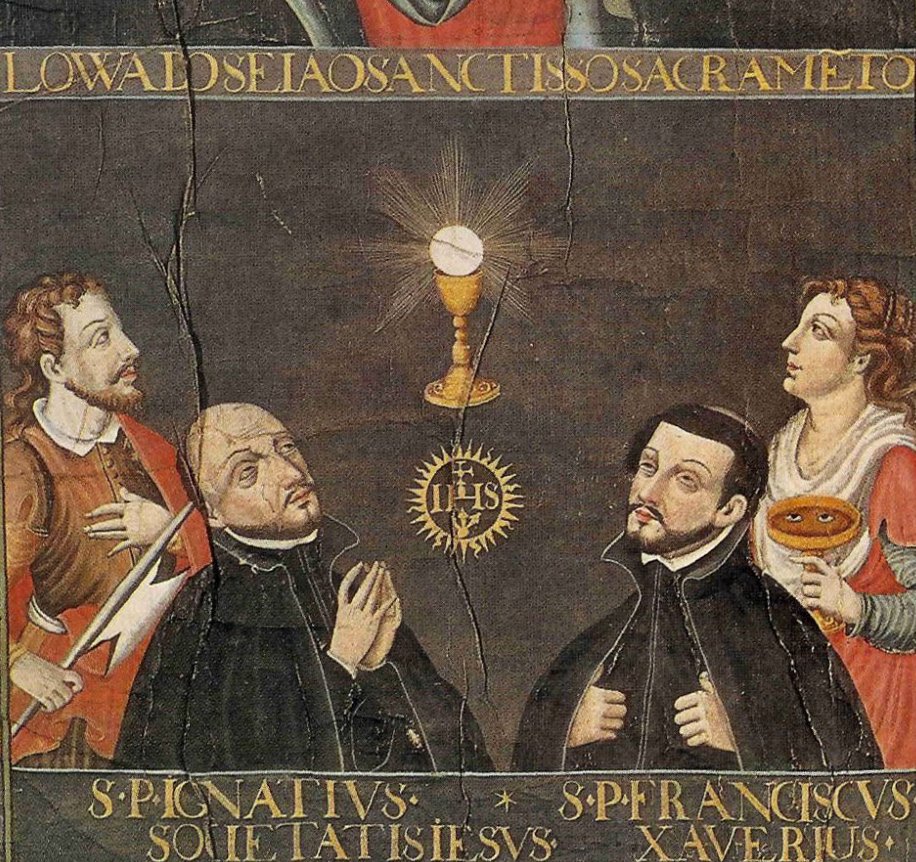 LOWADOSEIAOSANCTISSOSACRAMẼTO
IHS
S·P·IGNATIVS· * S·P·FRANCISCVS
SOCIETATISIESVS· XAVERIUS·